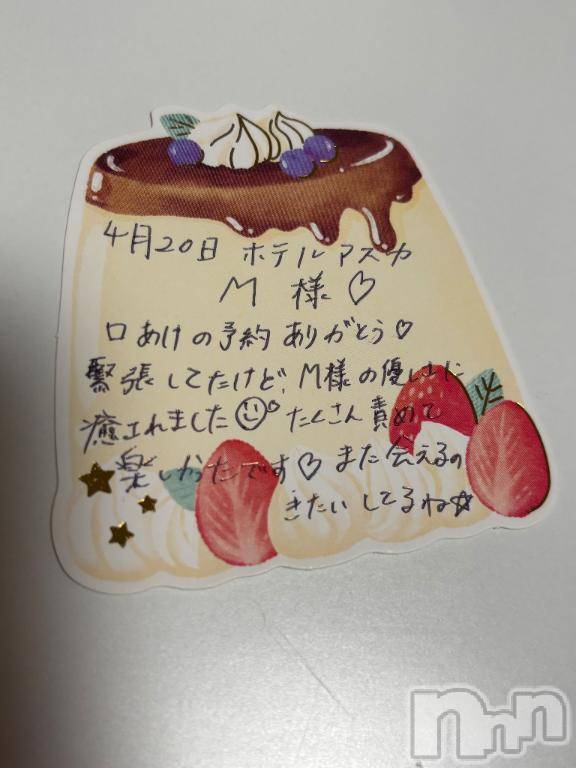 4月20日 ホテルアスカ
M 様♡
口あけの予約 ありがとう♡
緊張してたけど、M様の優しさに
癒されました☺♡ たくさん責めて
楽しかったです♡ また会えるの
きたいしてるね☆
nnn